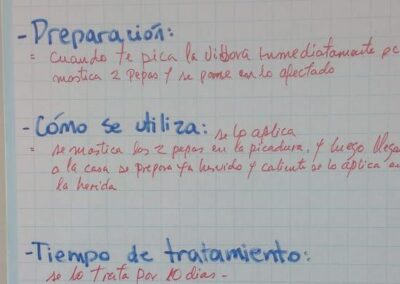 - Preparación:
= cuando te pica la vibora inmediatamente
mastica 2 pepas y se pone en lo afectado
- Cómo se utiliza: se lo aplica
= se mastica las 2 pepas en la picadura, y luego
a la casa se prepara ya hervido y caliente se lo áplica en
la herida
- Tiempo de tratamiento:
se lo trata por 10 dias -